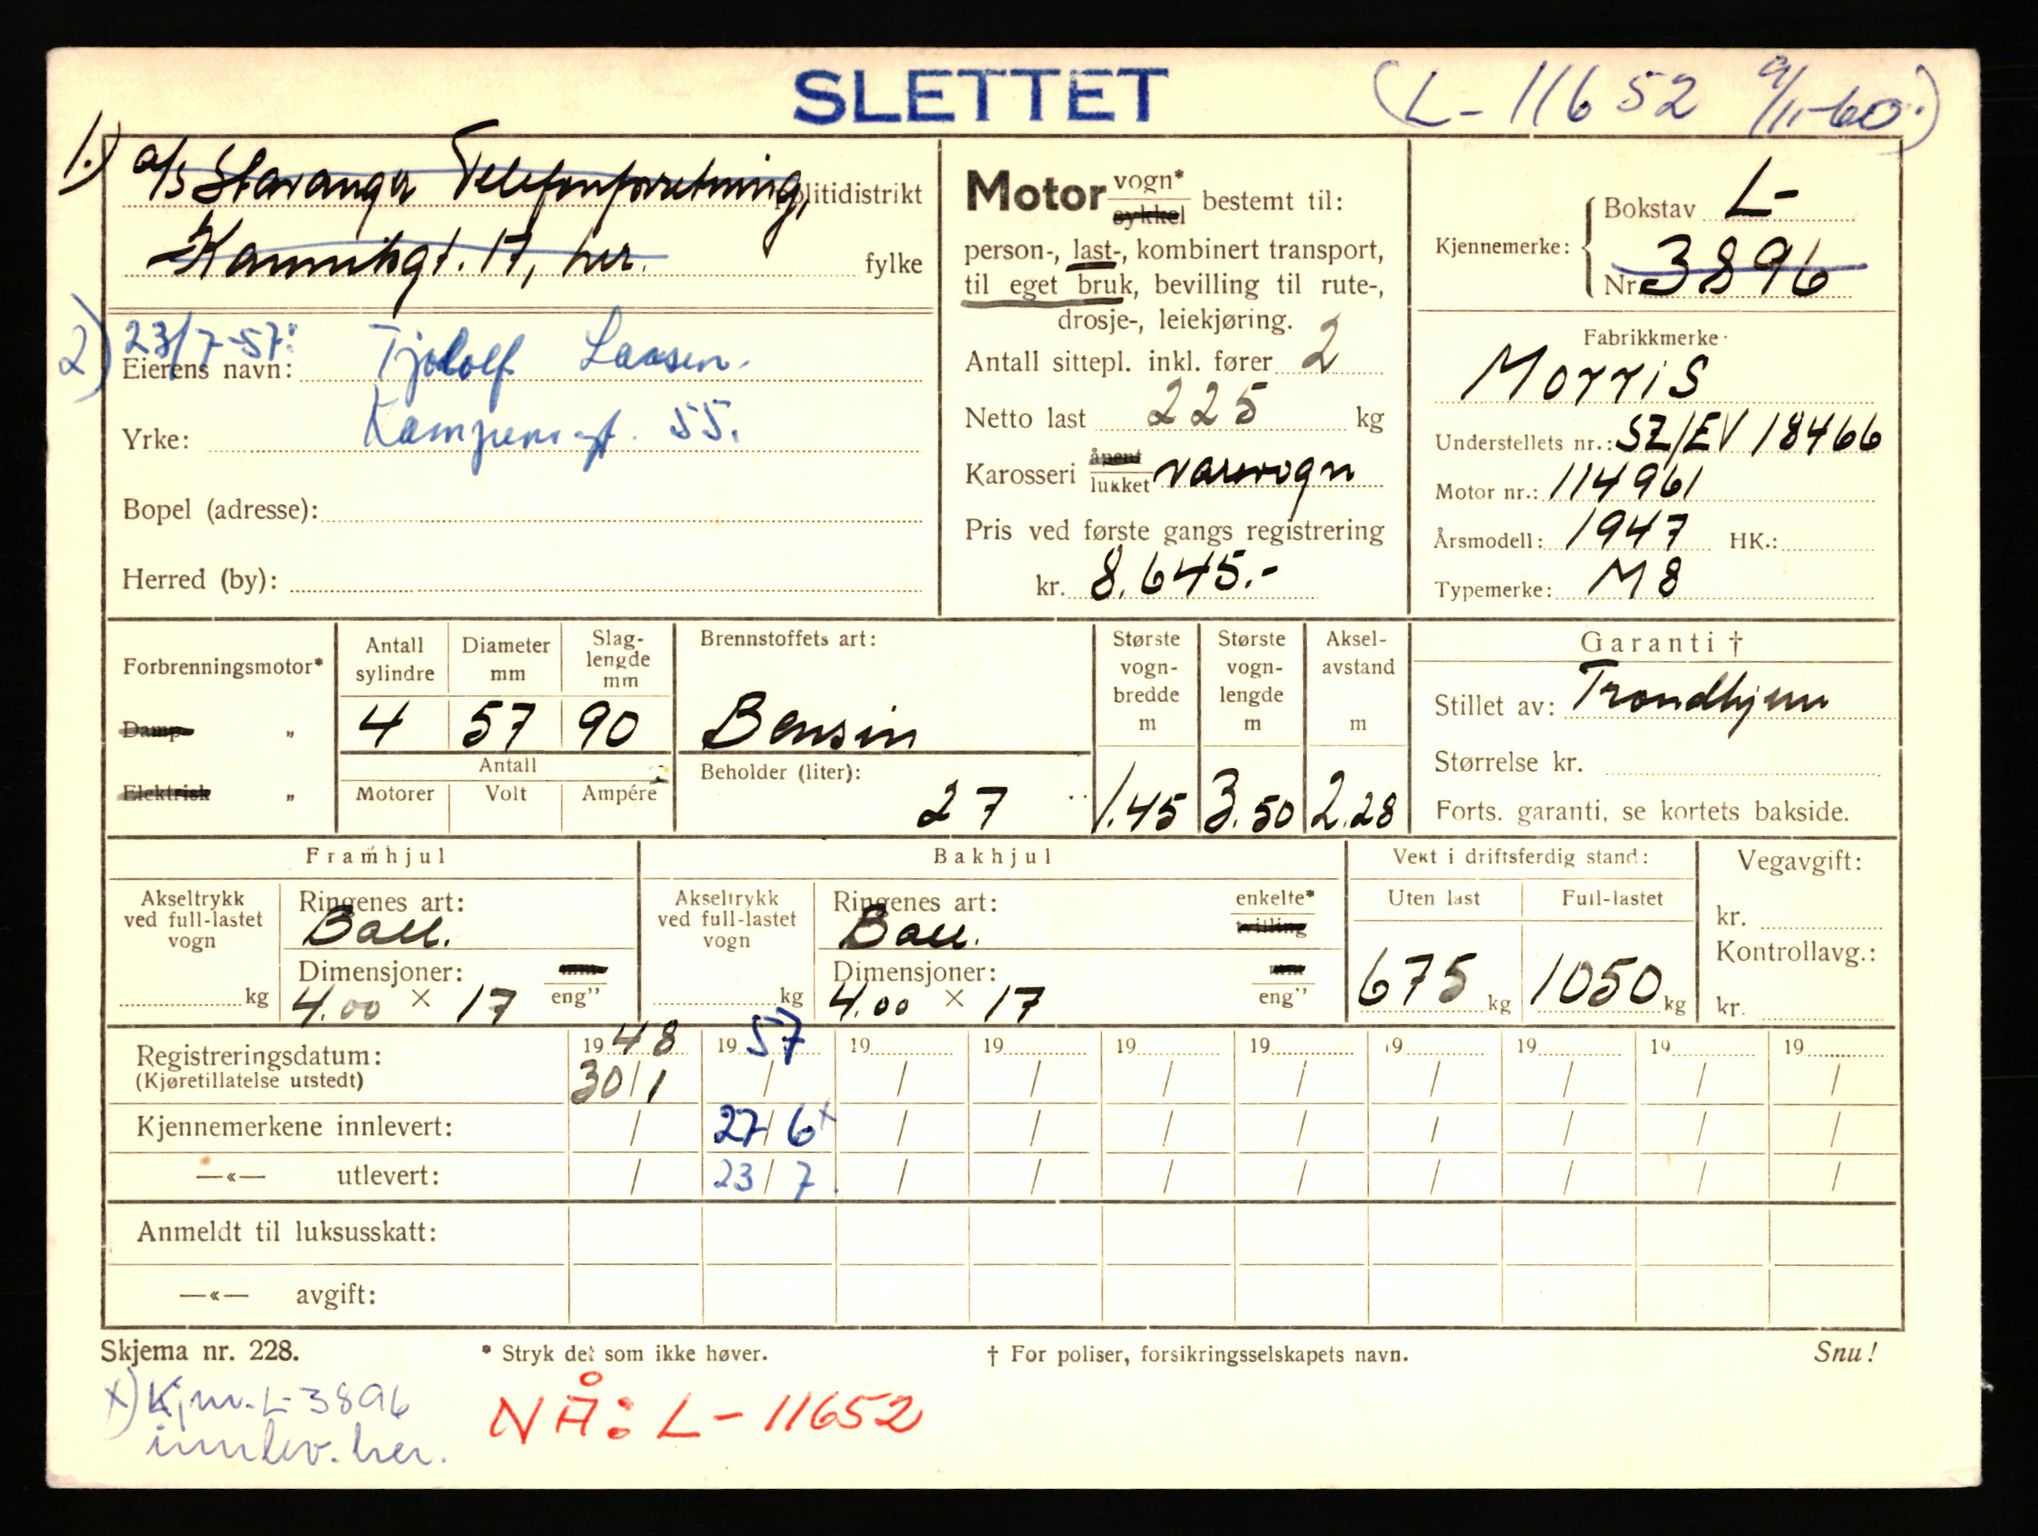 SLETTET
(L- 11652 9/11-60.)
1.) a/s Stavanger Telefonforretning, politidistrikt
Kannikgt. 17, her. fylke
2) 23/7-57:
Eierens navn: Tjodolf Laasen.
Yrke: Kampensgt. 55.
Bopel (adresse):
Herred (by):
Motor vogn* sykkel bestemt til:
person-, last-, kombinert transport,
til eget bruk, bevilling til rute-,
drosje-, leiekjøring.
Antall sittepl. inkl. fører 2
Netto last 225 kg
Karosseri åpent lukket varevogn
Pris ved første gangs registrering
kr. 8.645.-
Kjennemerke: Bokstav L-
Nr. 3896
Fabrikkmerke:
Morris
Understellets nr.: SZ/EV 18466
Motor nr.: 114961
Årsmodell: 1947 HK.:
Typemerke: M 8
Forbrenningsmotor*
Damp- „
Elektrisk „
Antall sylindre
Diameter mm
Slag-lengde mm
4 57 90
Antall
Motorer Volt Ampére
Brennstoffets art:
Bensin
Beholder (liter):
27
Største vogn-bredde m
1.45
Største vogn-lengde m
3.50
Aksel-avstand m
2.28
Garanti †
Stillet av: Trondhjem
Størrelse kr.
Forts. garanti, se kortets bakside.
Framhjul
Akseltrykk ved full-lastet vogn
kg
Ringenes art:
Ball.
Dimensjoner: mm
4.00 × 17 eng”
Bakhjul
Akseltrykk ved full-lastet vogn
kg
Ringenes art: enkelte*
Ball. tvilling
Dimensjoner: mm
4.00 × 17 eng”
Vekt i driftsferdig stand:
Uten last Full-lastet
675 kg 1050 kg
Vegavgift:
kr.
Kontrollavg.:
kr.
Registreringsdatum: 1948 1957 19 19 19 19 19 19 19 19
(Kjøretillatelse utstedt) 30/1 / / / / / / / / /
Kjennemerkene innlevert: / 27/6x / / / / / / / /
—«— utlevert: / 23/7. / / / / / / / /
Anmeldt til luksusskatt:
—«— avgift:
Skjema nr. 228. * Stryk det som ikke høver. † For poliser, forsikringsselskapets navn. Snu!
x) Kjm. L-3896
innlev. her.
NÅ: L-11652